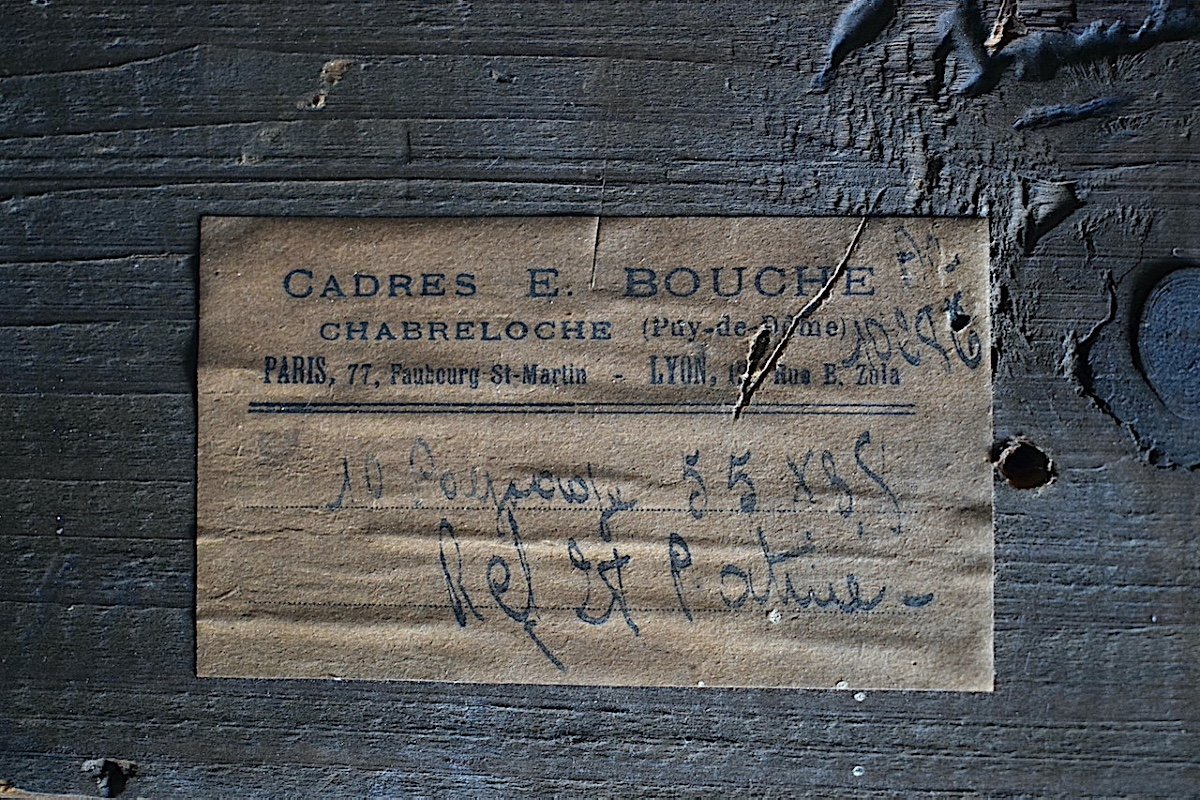 CADRES E. BOUCHE
CHABRELOCHE (Puy-de-Dôme)
PARIS, 77, Faubourg St-Martin - LYON, Rue E. Zola
10 55 x
Ref Patine -